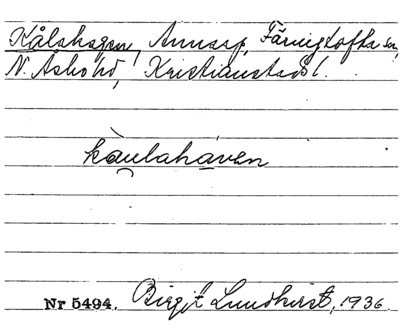 Kålahagen, Annarp, Färingtofta sn,
N. Åsbohd, Kristianstads l.
kàulahàven
Nr 5494. Birgit Lundkvist, 1936.